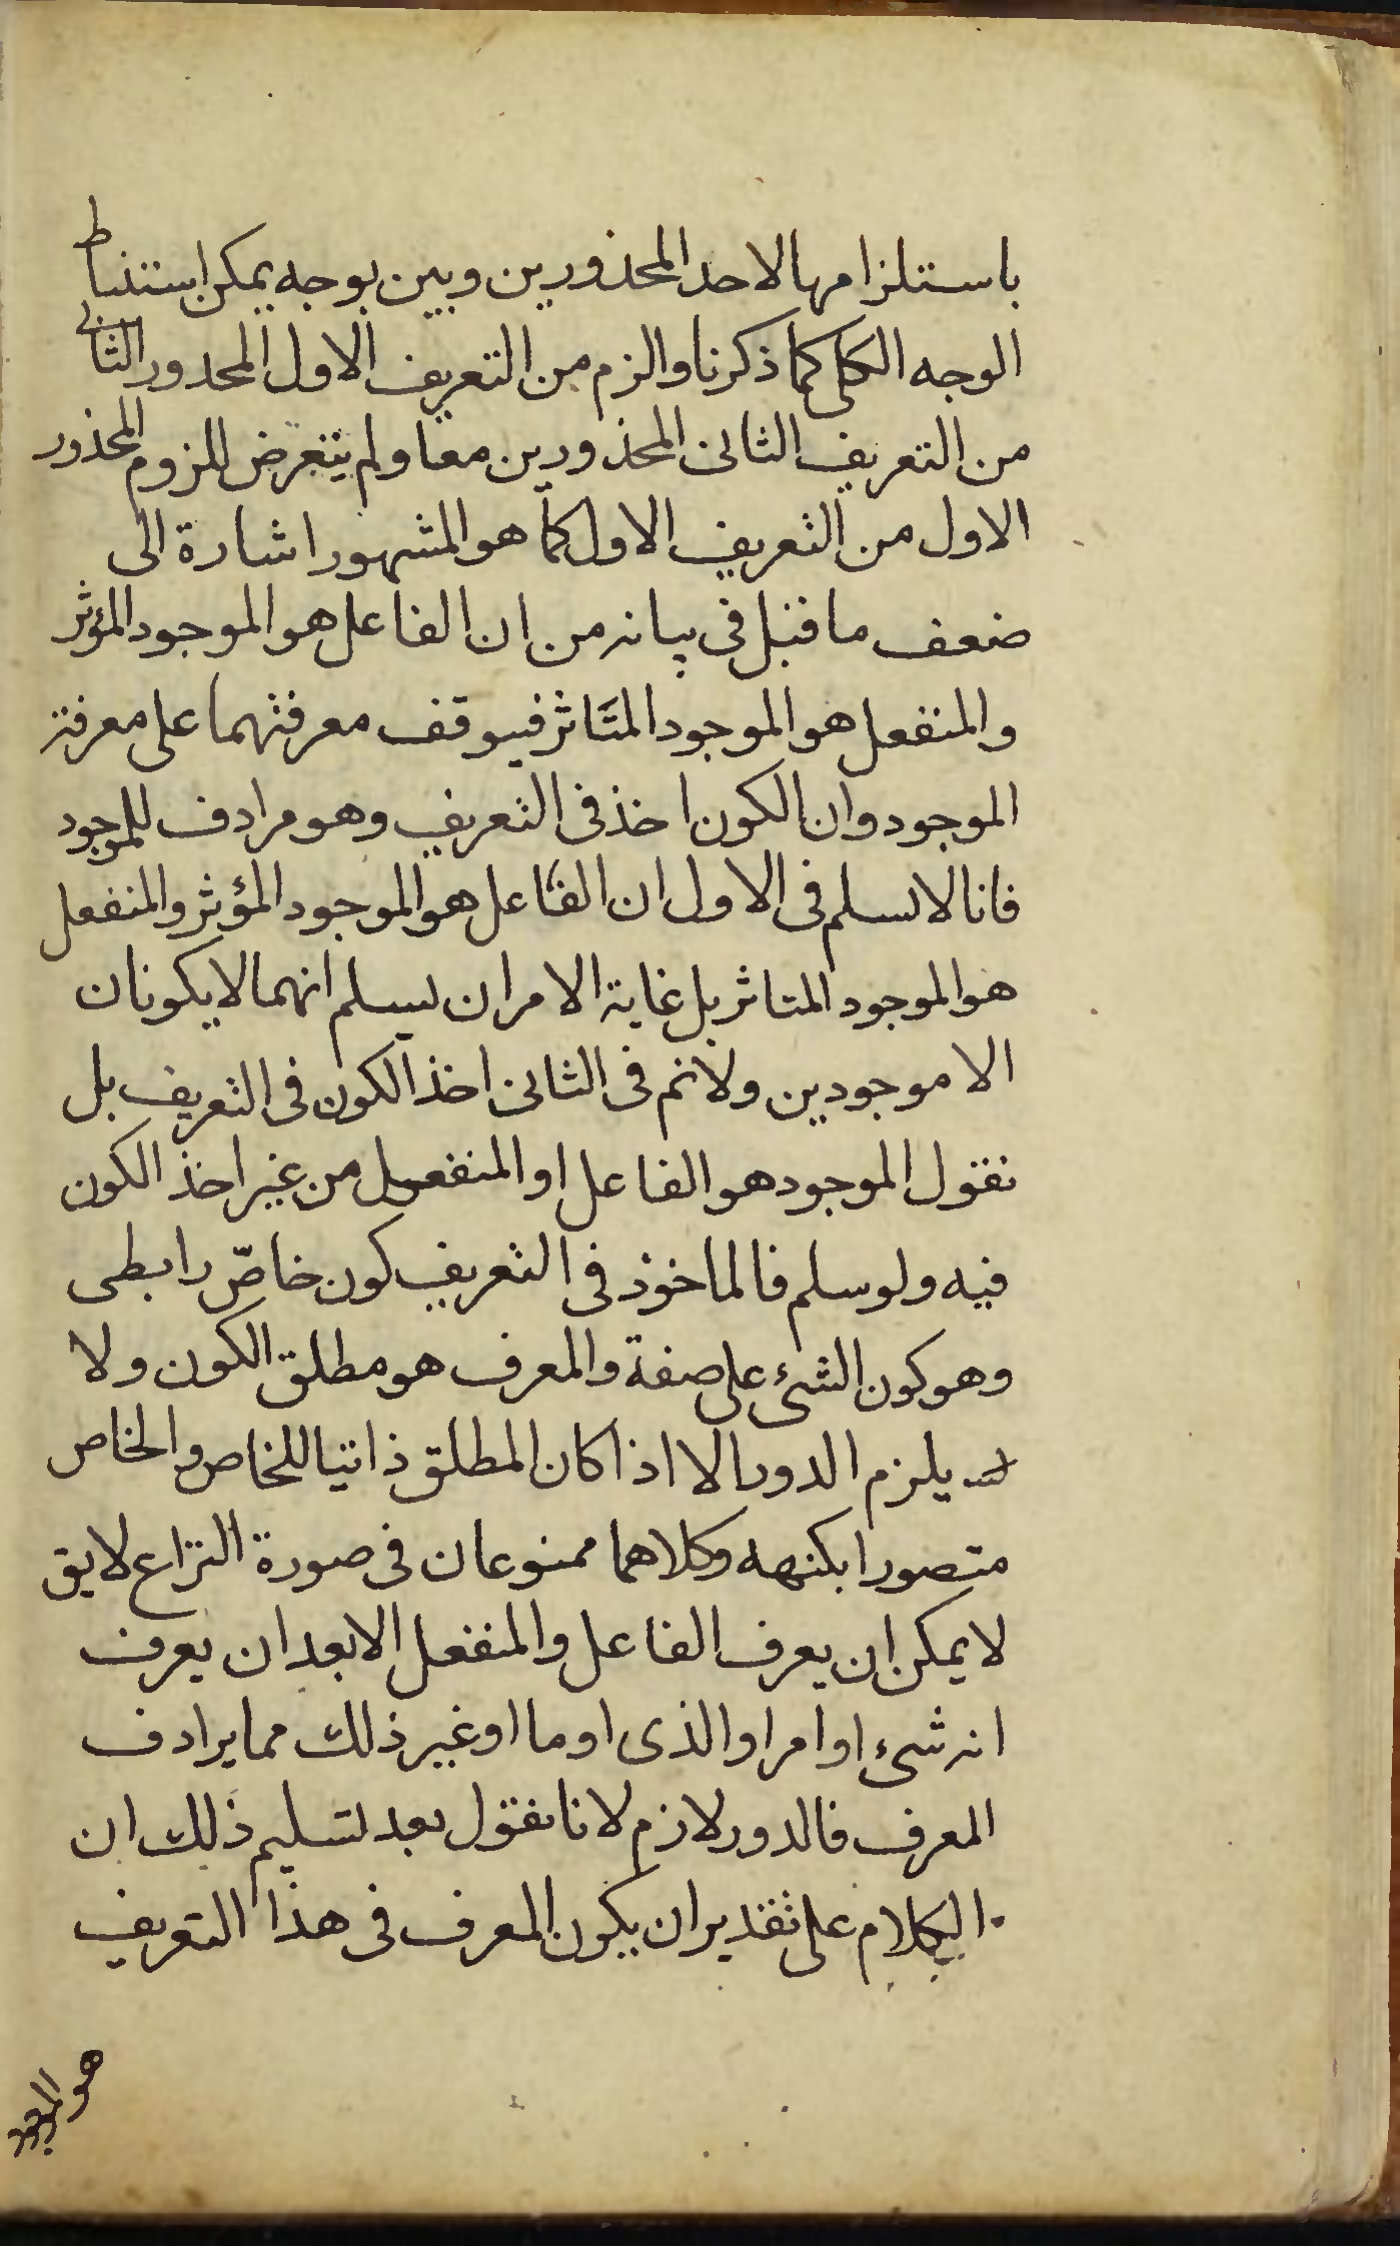 باستلزامها لاحد المحذورين وبين بوجه يمكن استنباط
الوجه الكلى كما ذكرنا والزم من التعريف الاول المحدور الثانى
من التعريف الثانى المحذورين معا ولم يتعرض للزوم المحذور
الاول من التعريف الاول كما هو المشهور اشارة الى
ضعف ما قيل فى بيانه من ان الفاعل هو الموجود المؤثر
والمنفعل هو الموجود المتاثر فيوقف معرفتهما على معرفة
الموجود وان الكون اخذ فى التعريف وهو مرادف للموجود
فانا لا نسلم فى الاول ان الفاعل هو الموجود المؤثر والمنفعل
هو الموجود المتاثر بل غاية الامر ان يسلم انهما لا يكونان
الا موجودين ولانم فى الثانى اخذ الكون فى التعريف بل
نقول الموجود هو الفاعل او المنفعل من غير اخذ الكون
فيه ولو سلم فالماخوذ فى التعريف كون خاصّ رابطى
وهو كون الشئ على صفة والمعرف هو مطلق الكون ولا
يلزم الدور الا اذا كان المطلق ذاتيا للخاص والخاص
متصورا بكنهه وكلاهما ممنوعان فى صورة النزاع لايق
لا يمكن ان يعرف الفاعل والمنفعل الا بعد ان يعرف
انه شىء او امر او الذى او ما او غير ذلك مما يرادف
المعرف فالدور لازم لانا نقول بعد تسليم ذلك ان
الكلام على تقدير ان يكون المعرف فى هذا التعريف
هو الموجود